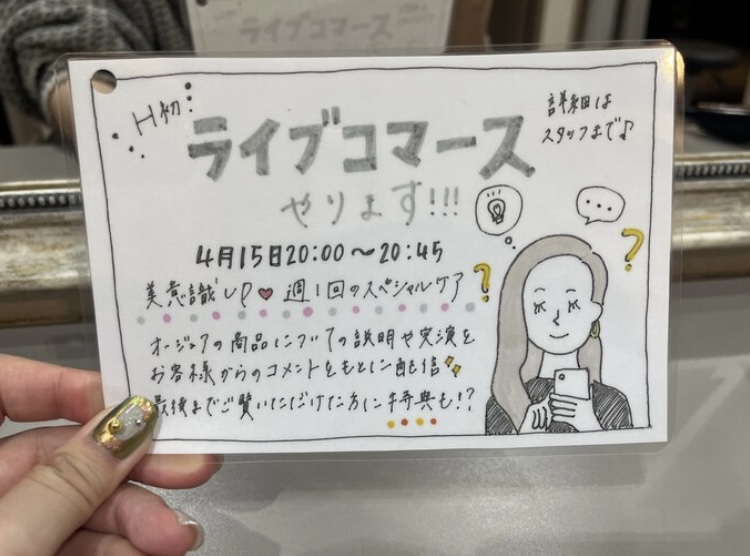 H初
ライブコマース
やります!!!
詳細は
スタッフまで♪
4月15日20:00～20:45
美意識UP♥週1回のスペシャルケア
オージュアの商品についての説明や実演を
お客様からのコメントをもとに配信
最後までご覧いただけた方に特典も!?
ライブコマース